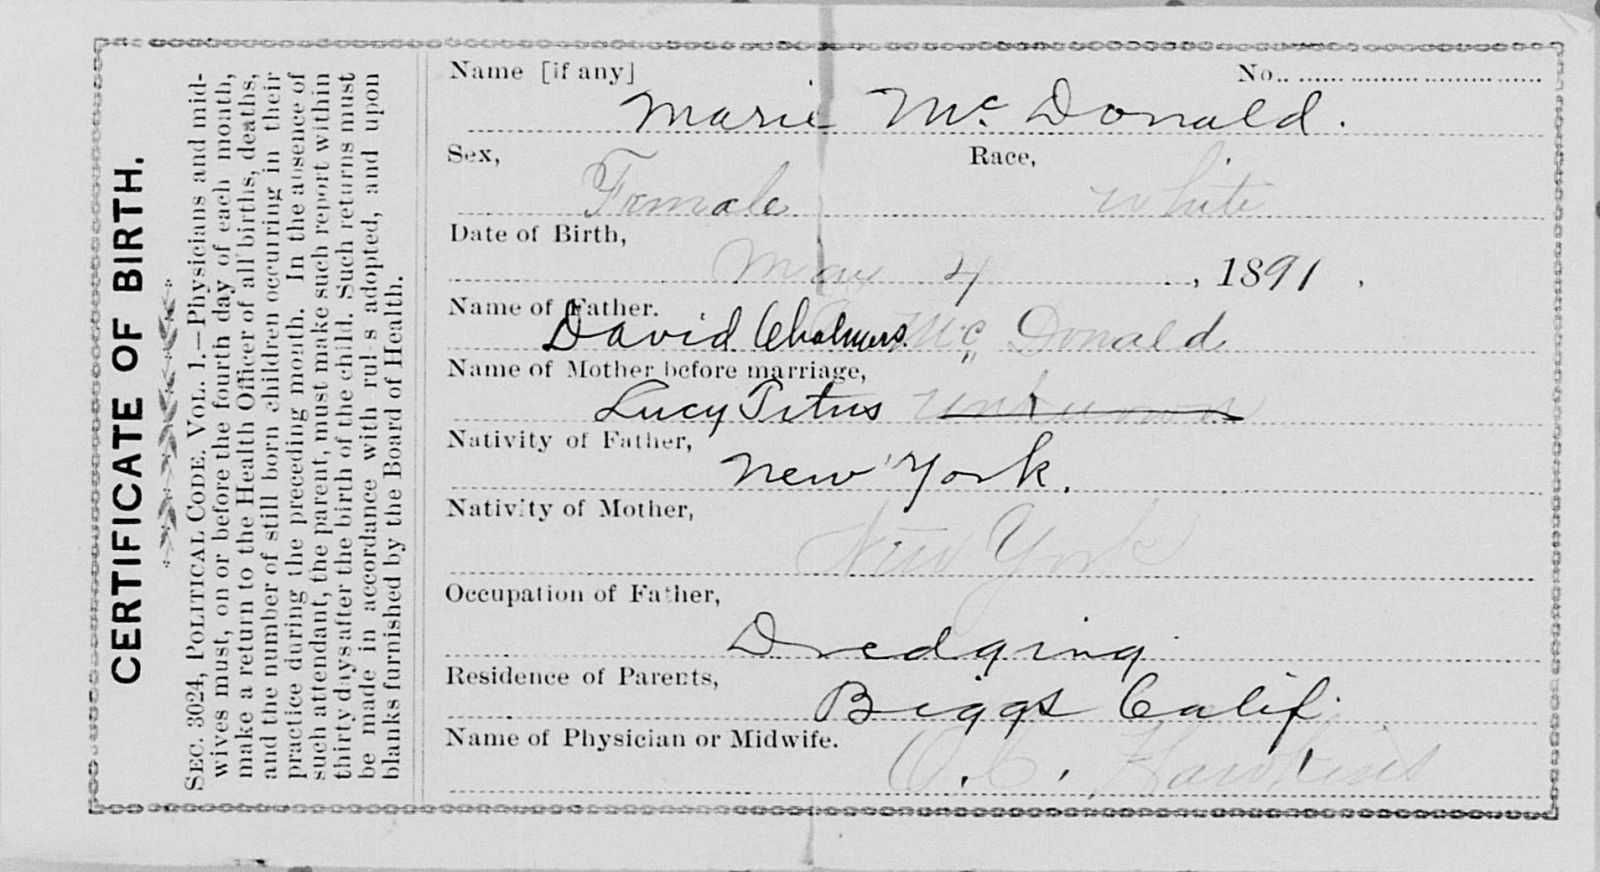 CERTIFICATE OF BIRTH.
SEC. 3024, POLITICAL CODE. VOL. 1.—Physicians and mid-
wives must, on or before the fourth day of each month,
make a return to the Health Officer of all births, deaths,
and the number of still born children occurring in their
practice during the preceding month. In the absence of
such attendant, the parent, must make such report within
thirty days after the birth of the child. Such returns must
be made in accordance with rules adopted, and upon
blanks furnished by the Board of Health.
Name [if any] No.
Marie McDonald.
Sex, Race,
Female White
Date of Birth,
May 4, 1891,
Name of Father.
David Chalmers Mc Donald
Name of Mother before marriage,
Lucy Titus unknown
Nativity of Father,
New York.
Nativity of Mother,
New York
Occupation of Father,
Dredging
Residence of Parents,
Biggs Calif.
Name of Physician or Midwife.
O. C. Hawkins